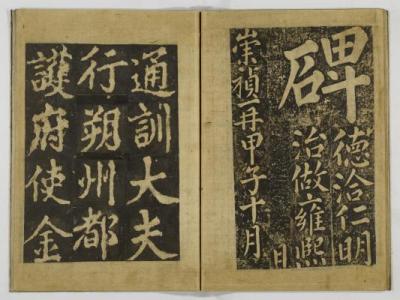 碑
德洽仁明
治做雍熙
崇禎再甲子十月
日
通訓大夫
行朔州都
護府使金